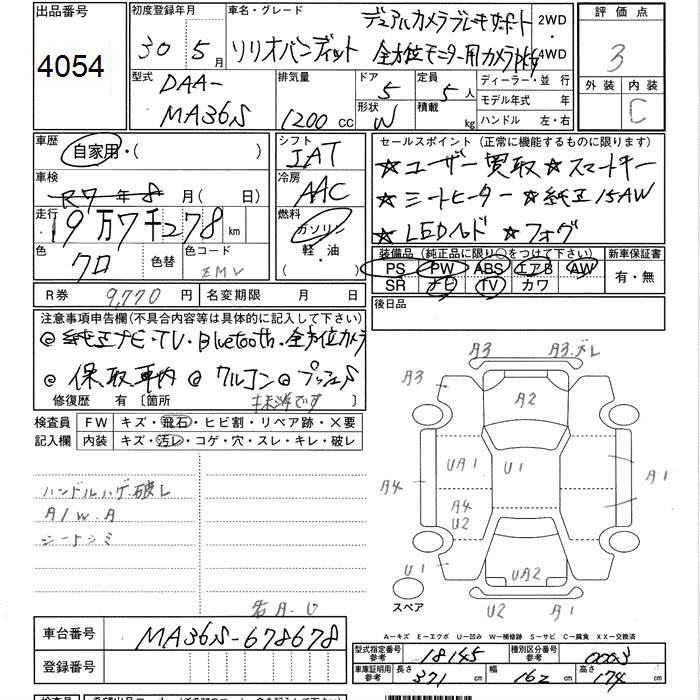 出品番号
4054
初度登録年月
30 5月
車名・グレード
ソリオバンディット
デュアルカメラブレーキサポート
全方位モニター用カメラpkg
2WD
・
4WD
評価点
3
外装 内装
C
型式
DAA-
MA36S
排気量
1200 cc
ドア
5
形状
W
定員
5人
積載
kg
ディーラー・並行
モデル年式 年
ハンドル 左・右
車歴
自家用・( )
シフト
IAT
車検
R7年8月( 日)
冷房
AAC
走行
19万7千278km
燃料
ガソリン
軽・油
( )
色
クロ
色替
色コード
ZMV
セールスポイント(正常に機能するものに限ります)
☆ユーザー買取☆スマートキー
☆シートヒーター☆純正15AW
☆LEDヘッド☆フォグ
装備品(純正品に限り〇をつけて下さい)
PS PW ABS エアB AW
SR ナビ TV カワ
新車保証書
有・無
R券 9,770円
名変期限 月 日
後日品
注意事項申告欄(不具合内容等は具体的に記入して下さい)
◎純正ナビ・TV・Bluetooth・全方位カメラ
◎保、取車内◎クルコン◎プッシュS
修復歴 有〔箇所
検査員
記入欄
FW キズ・飛石・ヒビ割・リペア跡・X要
内装 キズ・汚レ・コゲ・穴・スレ・キレ・破レ
ハンドルハゲ.破レ
A/W.A
シートシミ
若A.U
A3 A3.ズレ
A3
A2
UA1 U1
A4
A4
U2
A1
U1
UA2
スペア
U2 A1
A-キズ E-エクボ U-凹み W-補修跡 S-サビ C-腐食 XX-交換済
車台番号
MA36S-678678
登録番号
型式指定番号
参考
18145
種別区分番号
参考
0003
車庫証明用
参考
長さ
371 cm
幅
162 cm
高さ
174 cm